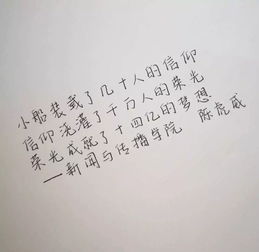 小船装载了几十人的信仰
信仰浇灌了千万人的荣光
荣光成就了十四亿的梦想
——新闻与传播学院 陈虎威